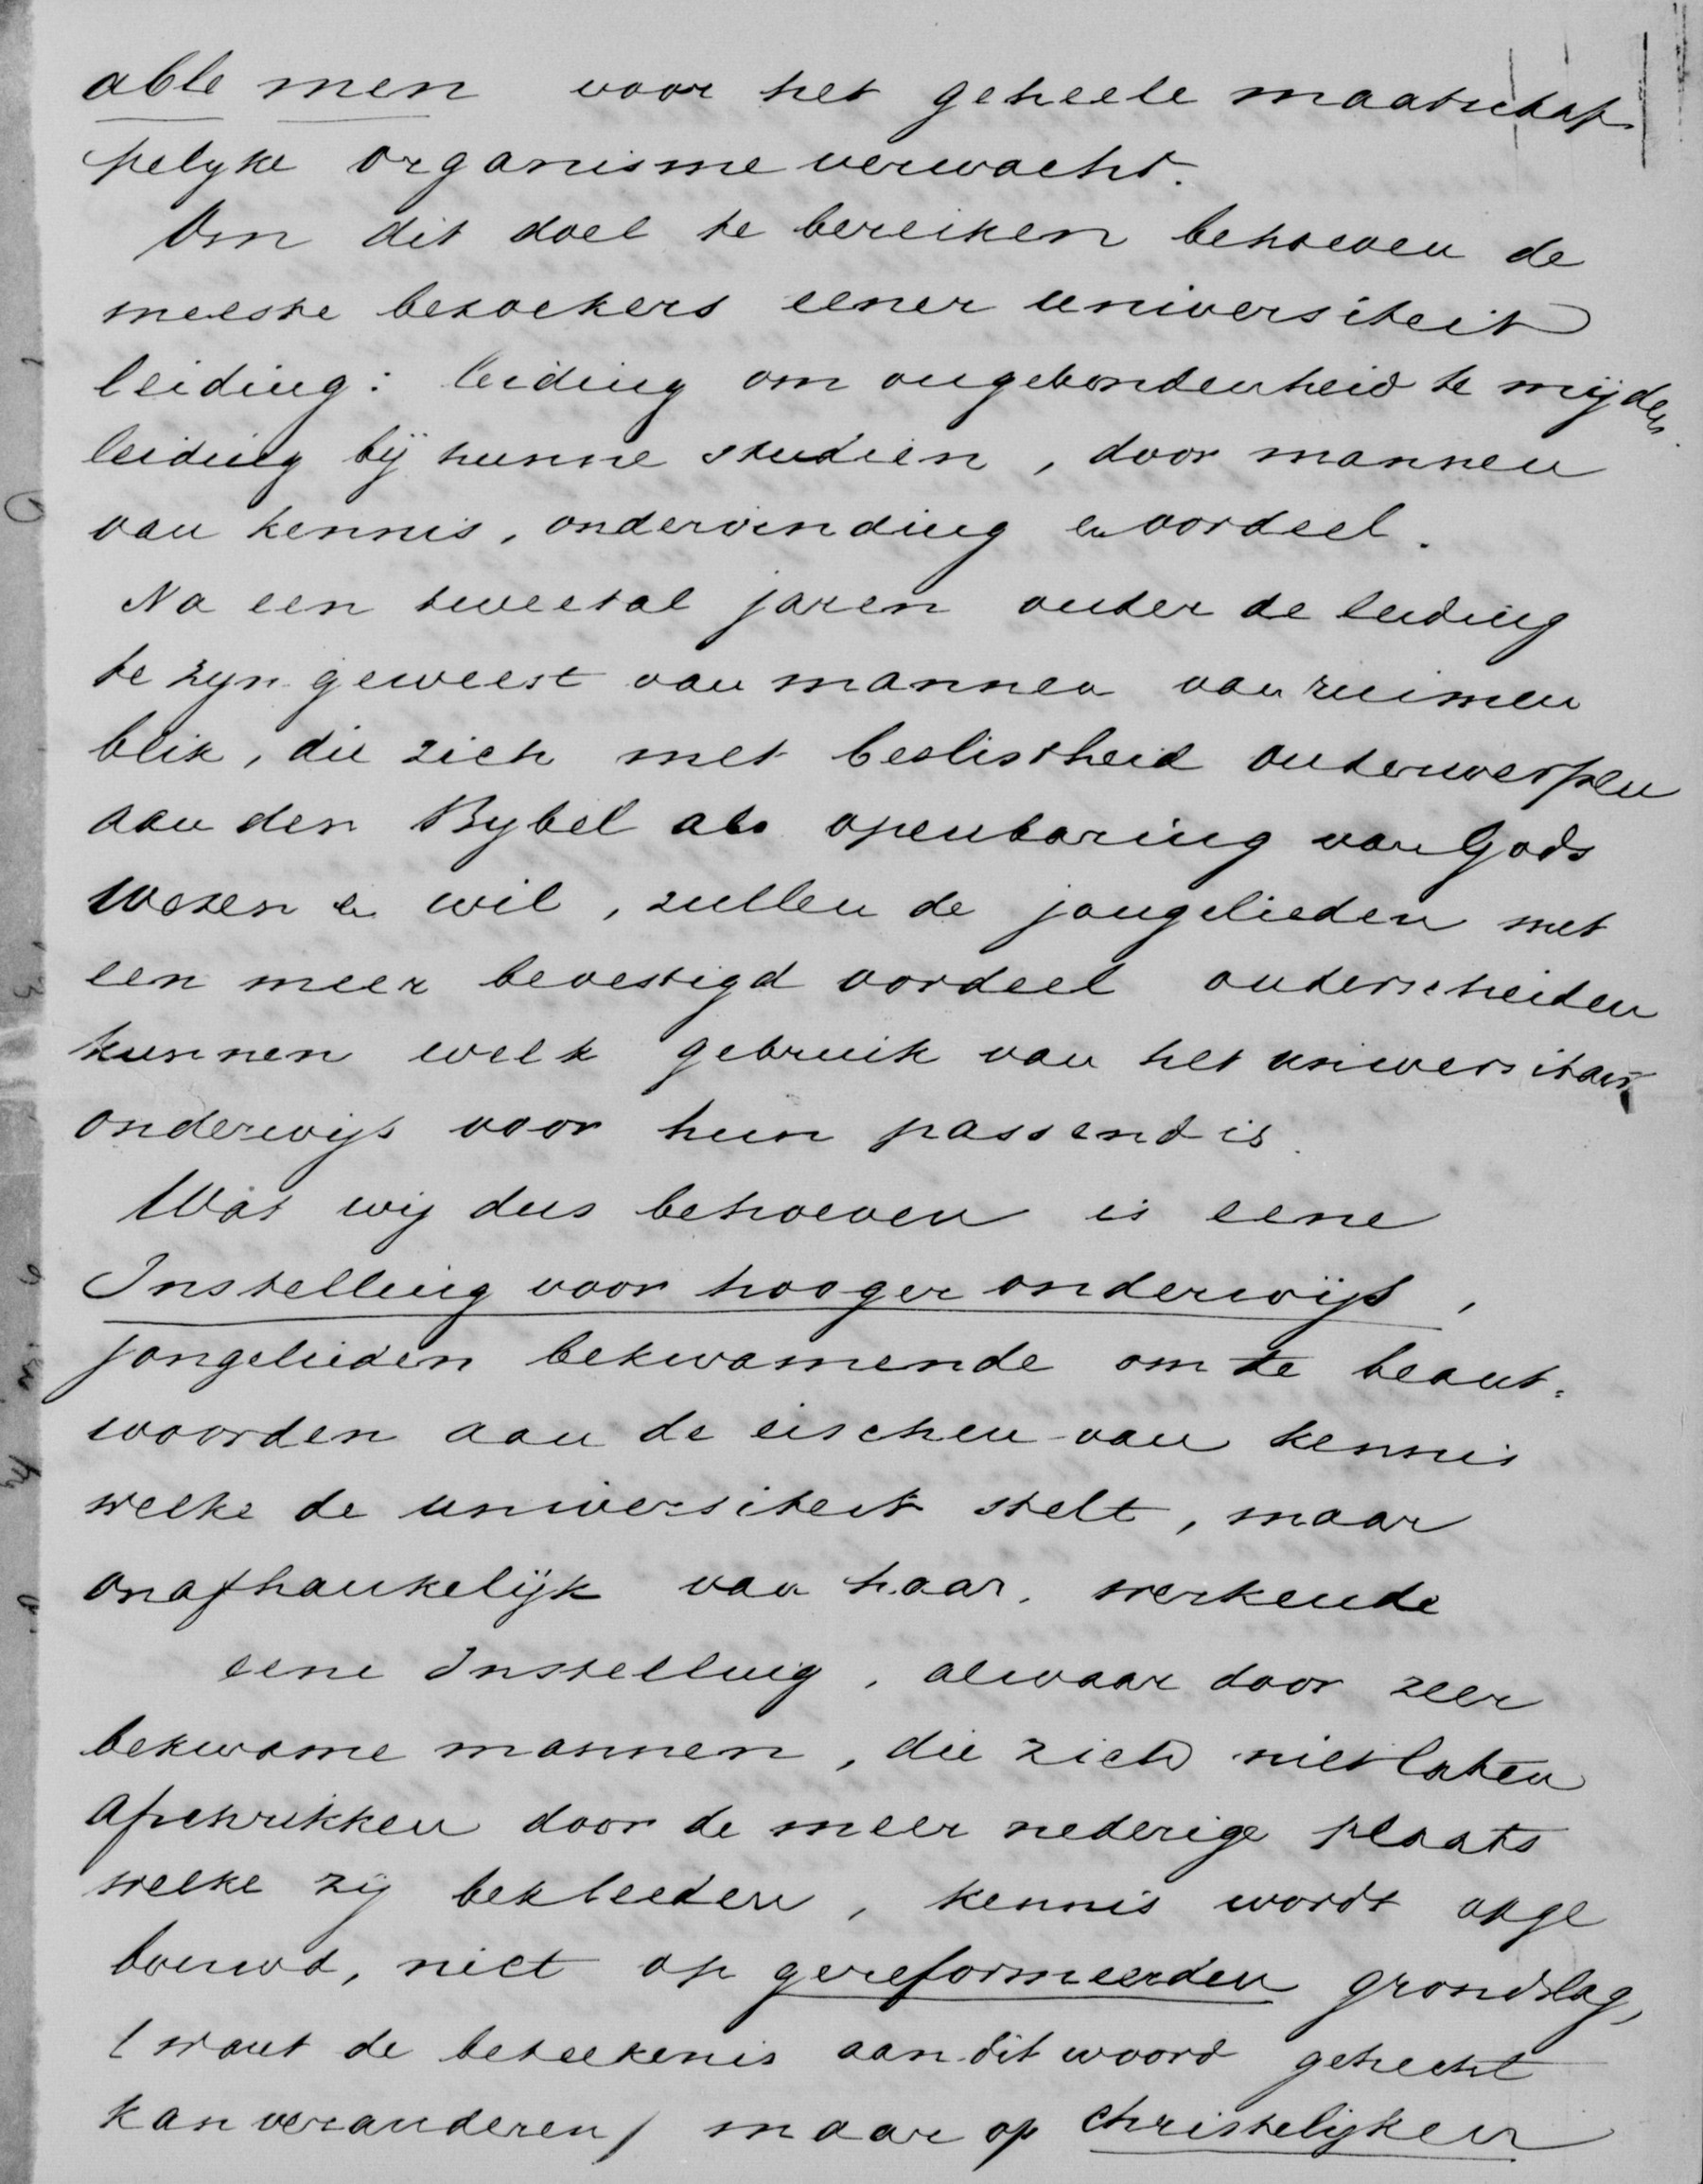 able men voor het geheele maatschap
pelyke organisme verwacht.
Om dit doel te bereiken behoeven de
meeste bezoekers eener universiteit
leiding: leiding om ongebondenheid te mijden
leiding bij hunne studien, door mannen
van kennis, ondervinding en oordeel.
Na een tweetal jaren onder de leiding
te zyn geweest van mannen van ruimen
blik, die zich met beslistheid onderwerpen
aan den Bybel als openbaring van Gods
wezen en wil, zullen de jongelieden met
een meer bevestigd oordeel onderscheiden
kunnen welk gebruik van het universitair
onderwijs voor hun passend is.
Wat wij dus behoeven is eene
Instelling voor hooger onderwijs,
jongelieden bekwamende om te beant-
woorden aan de eischen van kennis
welke de universiteit stelt, maar
onafhankelijk van haar, werkende
eene Instelling, alwaar door zeer
bekwame mannen, die zich niet laten
afschrikken door de meer nederige plaats
welke zij bekleeden, kennis wordt opge
bouwd, niet op gereformeerden grondslag,
(want de beteekenis aan dit woord gehecht
kan veranderen) maar op christelijken